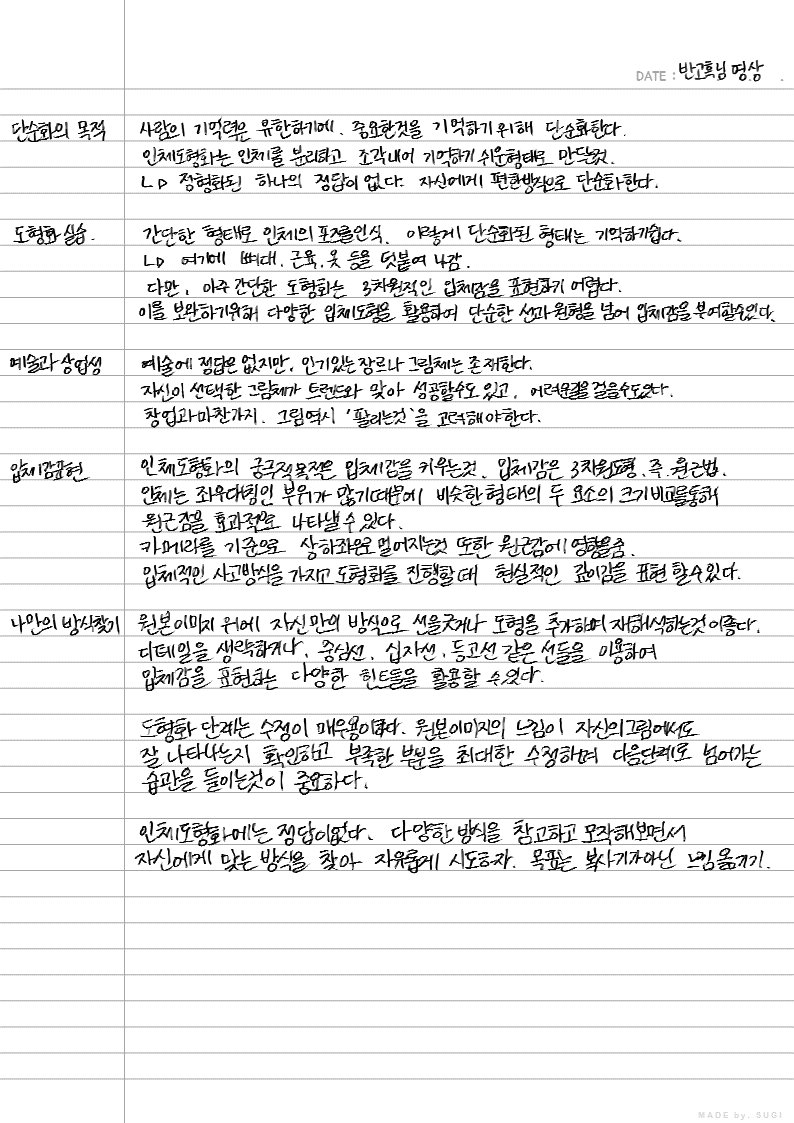 DATE : 반고흐님 영상 .
단순화의 목적 사람의 기억력은 유한하기에, 중요한것을 기억하기 위해 단순화한다.
인체도형화는 인체를 분리하고 조각내어 기억하기 쉬운형태로 만드는것.
L▷ 정형화된 하나의 정답이 없다. 자신에게 편한방식으로 단순화한다.
도형화 실습. 간단한 형태로 인체의 포즈를 인식. 이렇게 단순화된 형태는 기억하기쉽다.
L▷ 여기에 뼈대, 근육, 옷 등을 덧붙여 나감.
다만, 아주 간단한 도형화는 3차원적인 입체감을 표현하기 어렵다.
이를 보완하기위해 다양한 입체도형을 활용하여 단순한 선과 원형을 넘어 입체감을 부여할수있다.
예술과 상업성 예술에 정답은 없지만, 인기있는 장르나 그림체는 존재한다.
자신이 선택한 그림체가 트렌드와 맞아 성공할수도 있고, 어려운길을 걸을수도있다.
창업과 마찬가지. 그림역시 '팔리는것'을 고려해야한다.
입체감표현 인체도형화의 궁극적 목적은 입체감을 키우는것. 입체감은 3차원도형, 즉 원근법.
인체는 좌우대칭인 부위가 많기때문에 비슷한 형태의 두 요소의 크기비교를통해
원근감을 효과적으로 나타낼 수 있다.
카메라를 기준으로 상하좌우로 멀어지는것 또한 원근감에 영향을줌.
입체적인 사고방식을 가지고 도형화를 진행할 때 현실적인 깊이감을 표현 할 수 있다.
나만의 방식찾기 원본이미지 위에 자신만의 방식으로 선을긋거나 도형을 추가하며 재해석하는것이좋다.
디테일을 생략하거나, 중심선, 십자선, 등고선 같은 선들을 이용하여
입체감을 표현하는 다양한 힌트들을 활용할 수 있다.
도형화 단계는 수정이 매우용이하다. 원본이미지의 느낌이 자신의그림에서도
잘 나타나는지 확인하고 부족한 부분을 최대한 수정하며 다음단계로 넘어가는
습관을 들이는것이 중요하다.
인체도형화에는 정답이없다. 다양한 방식을 참고하고 모작해보면서
자신에게 맞는 방식을 찾아 자유롭게 시도하자. 목표는 복사기가아닌 느낌 옮기기.
MADE by. SUGI